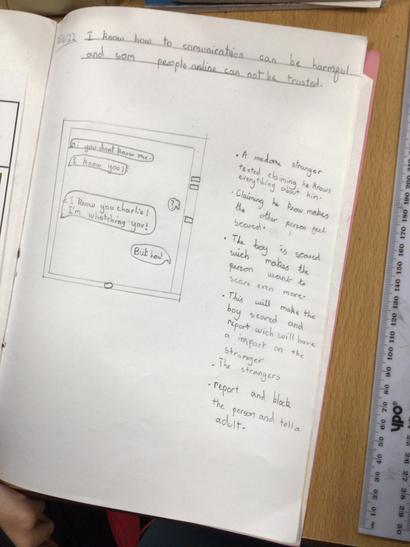 I know how to comunicaition can be harmful
and som people online can not be trusted.
Hi you dont know me.
I know you!
?
I know you charlie!
I'm whatching you!
But how!
• A madome stranger
texted claiming he knows
everything about him.
• Claiming he know makes
the other person feel
scared.
• The boy is scared
wich makes the
person want to
scare even more.
• This will make the
boy scared and
report wich will have
a impact on the
stranger
• The strangers
• report and block
the person and tell a
adult.